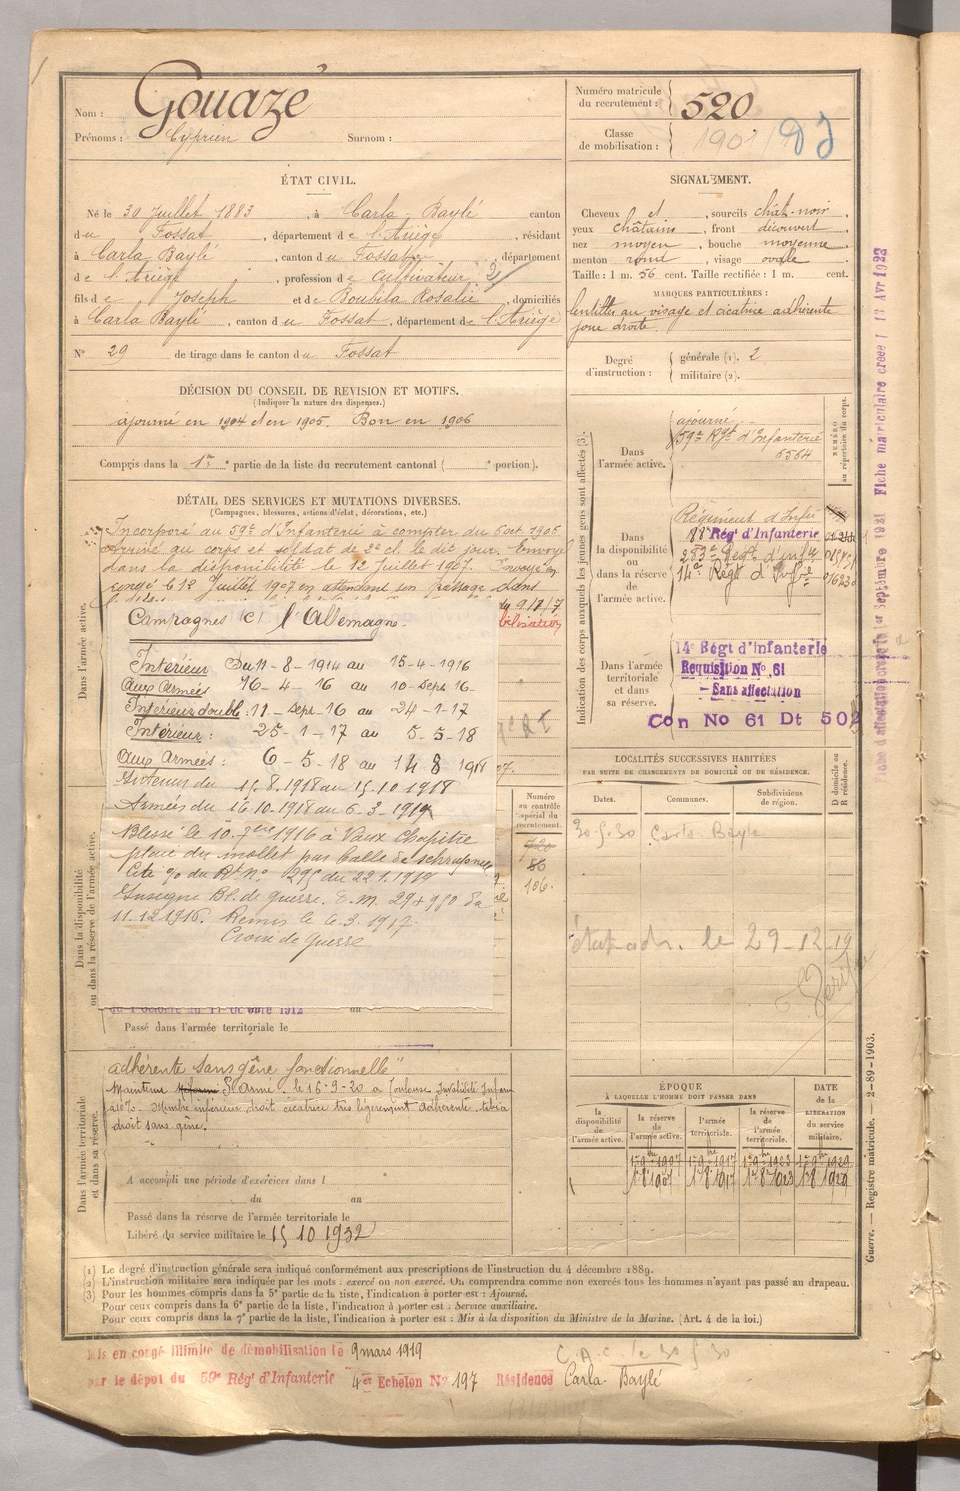 Nom : Gouazé
Prénoms : Cyprien Surnom :
Numéro matricule du recrutement : 520
Classe de mobilisation : 1901
ÉTAT CIVIL.
Né le 30 Juillet 1883, à Carla-Baylé canton
du Fossat, département de l'Ariège, résidant
à Carla Baylé, canton du Fossat, département
de l'Ariège, profession de Cultivateur
fils de Joseph et de Boubila Rosalie, domiciliés
à Carla Baylé, canton du Fossat, département de l'Ariège
N° 29 de tirage dans le canton du Fossat
SIGNALEMENT.
Cheveux et, sourcils chât-noir,
yeux châtains, front découvert,
nez moyen, bouche moyenne,
menton rond, visage ovale
Taille : 1 m. 56 cent. Taille rectifiée : 1 m. cent.
MARQUES PARTICULIÈRES :
lentilles au visage et cicatrice adhérente
joue droite.
Degré d'instruction : générale (1). 2
militaire (2).
DÉCISION DU CONSEIL DE REVISION ET MOTIFS.
(Indiquer la nature des dispenses.)
ajourné en 1904 et en 1905. Bon en 1906
Compris dans la 1re partie de la liste du recrutement cantonal ( portion).
DÉTAIL DES SERVICES ET MUTATIONS DIVERSES.
(Campagnes, blessures, actions d'éclat, décorations, etc.)
Incorporé au 59e d'Infanterie à compter du 6 oct 1905
Arrivé au corps et soldat de 2e cl. le dit jour. Envoyé
dans la disponibilité le 12 Juillet 1907. Envoyé en
congé le 12 Juillet 1907 en attendant son passage dans
Campagnes ct l'Allemagne
Intérieur Du 11-8-1914 au 15-4-1916
Aux Armées 16-4-16 au 10-Sept 16-
Intérieur double : 11-Sept-16 au 24-1-17
Intérieur : 25-1-17 au 5-5-18
Aux Armées : 6-5-18 au 14 8 1918
Intérieur du 15.8.1918 au 15.10 1918
Armées du 16.10.1918 au 6.3.1919
Blessé le 10.7bre 1916 à Vaux Chapitre
plaie du mollet par balle de schrapnell
Cité
Insigne Bl. de guerre.
11.12 1916. Remis le 6.3.1917.
Croix de Guerre
du 1 Octobre au 17 Octobre 1912
Passé dans l'armée territoriale le
adhérente sans gêne fonctionnelle"
Maintenu S. Armé. le 15-9-20 à Toulouse Invalidité Infeure
à 10%. Membre inférieur droit cicatrice très légèrement adhérente tibia
droit sans gêne.
A accompli une période d'exercices dans l
du au
Passé dans la réserve de l'armée territoriale le
Libéré du service militaire le 15 10 1932
Dans l'armée active.
Dans la disponibilité ou dans la réserve de l'armée active.
Dans l'armée territoriale et dans sa réserve.
Indication des corps auxquels les jeunes gens sont affectés (3).
NUMÉRO au répertoire du corps.
Dans l'armée active.
ajourné
59e Rgt d'Infanterie
6564
Dans la disponibilité ou dans la réserve de l'armée active.
Régiment d'Infie
Régt d'Infanterie
283e Régt d'infie
14e Régt d'Infie
Dans l'armée territoriale et dans sa réserve.
14e Régt d'Infanterie
Requisition No 61
- Sans affectation
Con No 61 Dt 502
LOCALITÉS SUCCESSIVES HABITÉES
PAR SUITE DE CHANGEMENTS DE DOMICILE OU DE RÉSIDENCE.
Dates. Communes. Subdivisions de région. D domicile ou R résidence.
30-5-30 Carla-Bayle
le 29-12-19
Numéro au contrôle spécial du recrutement.
80
106.
ÉPOQUE
À LAQUELLE L'HOMME DOIT PASSER DANS
la disponibilité de l'armée active. la réserve de l'armée active. l'armée territoriale. la réserve de l'armée territoriale.
DATE de la LIBÉRATION du service militaire.
1er 8bre 1907 1er 8bre 1917 1er 8bre 1923 1er 8bre 1929
Fiche matriculaire créée 13 Avr 1923
Guerre. — Registre matricule. — 2-89-1903.
(1) Le degré d'instruction générale sera indiqué conformément aux prescriptions de l'instruction du 4 décembre 1889.
(2) L'instruction militaire sera indiquée par les mots : exercé ou non exercé. On comprendra comme non exercés tous les hommes n'ayant pas passé au drapeau.
(3) Pour les hommes compris dans la 5e partie de la liste, l'indication à porter est : Ajourné.
Pour ceux compris dans la 6e partie de la liste, l'indication à porter est : Service auxiliaire.
Pour ceux compris dans la 7e partie de la liste, l'indication à porter est : Mis à la disposition du Ministre de la Marine. (Art. 4 de la loi.)
Mis en congé illimité de démobilisation le 9 mars 1919
par le dépot du 59e Régt d'Infanterie 4er Echelon No 197 Résidence Carla-Baylé
C.A.C. le 30 5 30